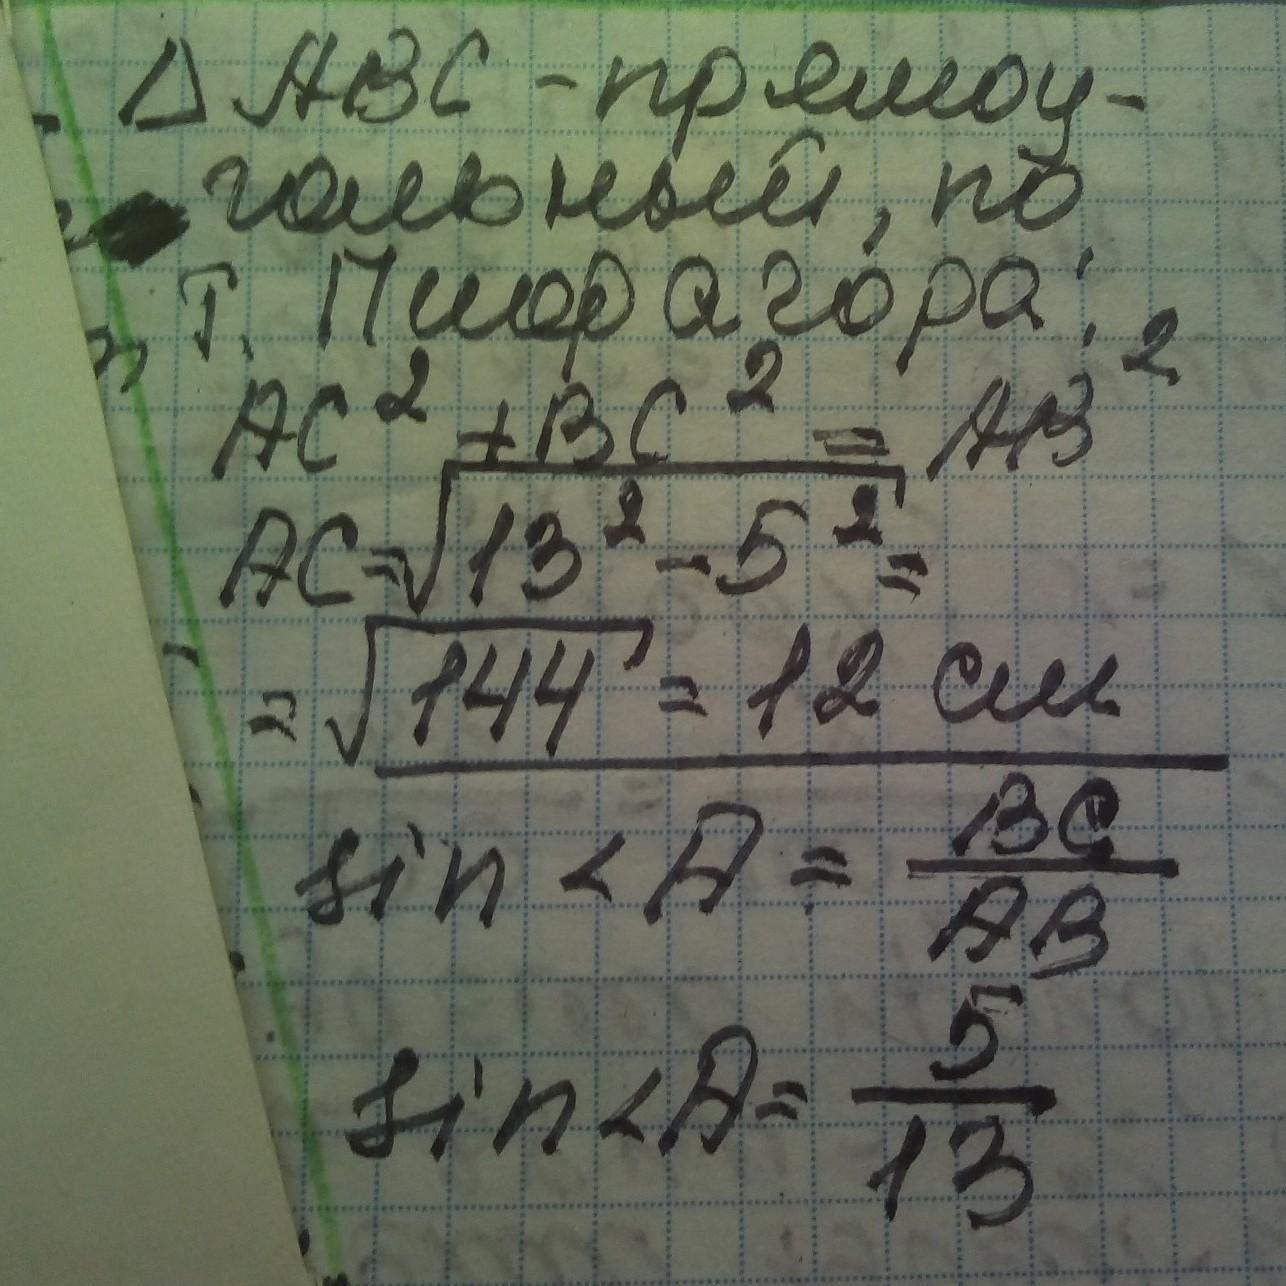 Δ ABC - прямоу-
гольный, по
т. Пифагора:
AC² + BC² = AB²
AC = √13² - 5² =
= √144 = 12 см
sin < A = BC/AB
sin < A = 5/13